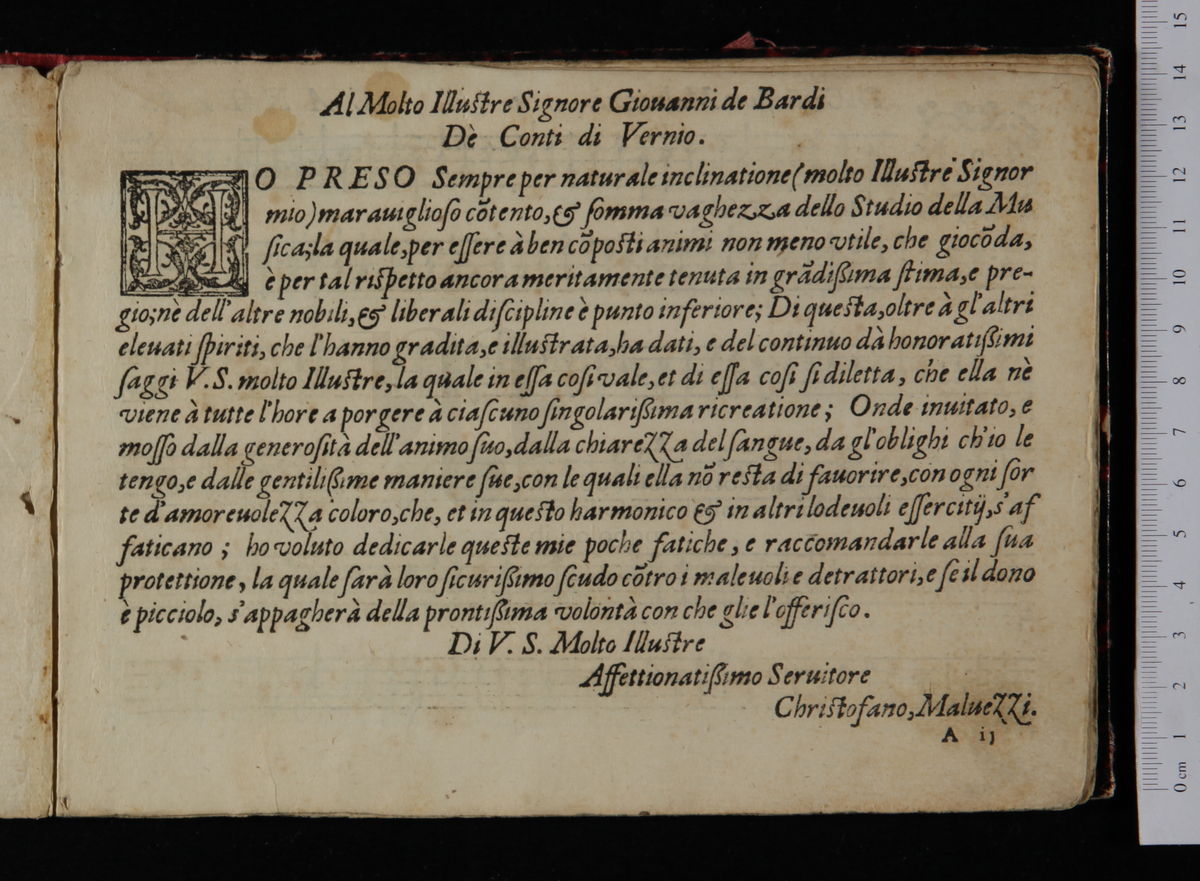 Al Molto Illustre Signore Giouanni de Bardi
Dè Conti di Vernio.
HO PRESO Sempre per naturale inclinatione (molto Illustre Signor
mio) marauiglioſo cõtento, & ſomma vaghezza dello Studio della Mu
ſica; la quale, per eſſere à ben cõpoſti animi non meno vtile, che giocõda,
è per tal riſpetto ancora meritamente tenuta in grãdißima ſtima, e pre-
gio; nè dell'altre nobili, & liberali diſcipline è punto inferiore; Di questa, oltre à gl'altri
eleuati ſpiriti, che l'hanno gradita, e illustrata, ha dati, e del continuo dà honoratißimi
ſaggi V. S. molto Illustre, la quale in eſſa coſi vale, et di eſſa coſi ſi diletta, ch'e ella nè
viene à tutte l'hore a porgere à ciaſcuno ſingolarißima ricreatione; Onde inuitato, e
moſſo dalla generoſità dell'animo ſuo, dalla chiarezza del ſangue, da gl'oblighi ch'io le
tengo, e dalle gentilißime maniere ſue, con le quali ella nõ resta di fauorire, con ogni ſor
te d'amoreuolezza coloro, che, et in questo harmonico & in altri lodeuoli eſſercitÿ, s'af
faticano; ho voluto dedicarle queste mie poche fatiche, e raccomandarle alla ſua
protettione, la quale ſarà loro ſicurißimo ſcudo cõtro i maleuoli e detrattori, e ſe il dono
è picciolo, s'appagherà della prontißima volontà con che glie l'offeriſco.
Di V. S. Molto Illustre
Affettionatißimo Seruitore
Christofano, Maluezzi.
A ij
0 cm 1 2 3 4 5 6 7 8 9 10 11 12 13 14 15